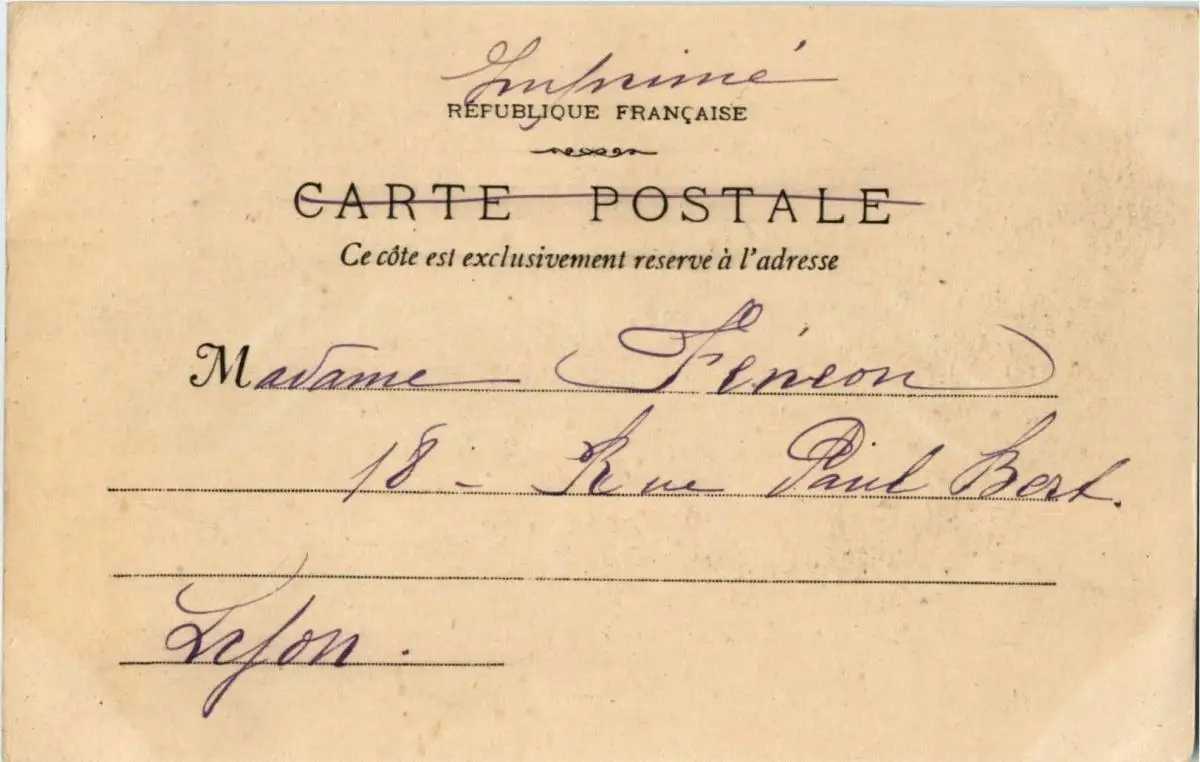 Imprimé
RÉPUBLIQUE FRANÇAISE
CARTE POSTALE
Ce côte est exclusivement reserve à l'adresse
Madame Fénéon
18 - Rue Paul Bert.
Lyon.